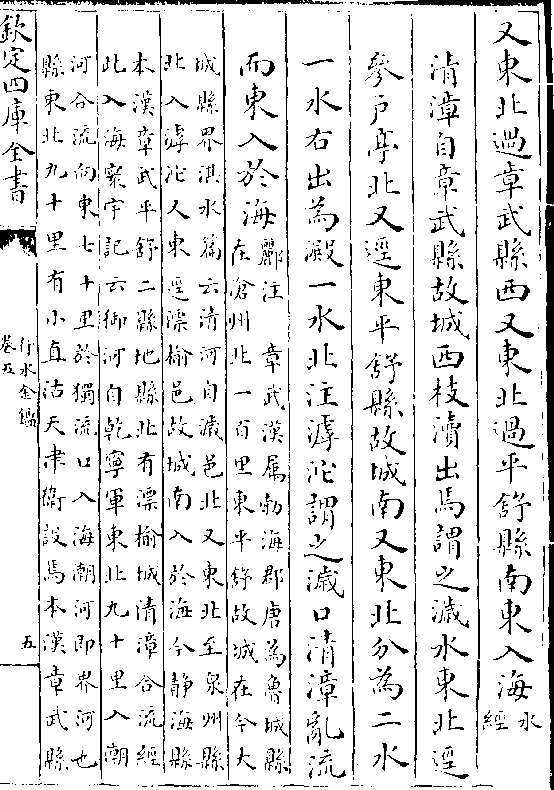 又東北過章武縣西又東北過平舒縣南東入海水經
清漳自章武縣故城西枝瀆出焉謂之濊水東北逕
參戶亭北又逕東平舒縣故城南又東北分為二水
一水右出為澱一水北注滹沱謂之濊口清漳亂流
而東入於海
酈注 章武漢属勃海郡唐為魯城縣
在滄州北一百里東平舒故城在今大
城縣界淇水篇云清河自濊邑北又東北至泉州縣
北入滹沱又東逕漂榆邑故城南入於海今静海縣
本漢章武平舒二縣地縣北有漂榆城清漳合流經
此入海寰宇記云御河自乾寧軍東北九十里入潮
河合流向東七十里於獨流口入海潮河即界河也
縣東北九十里有小直沽天津衛設焉本漢章武縣
欽定四庫全書
行水金鑑
卷五
五